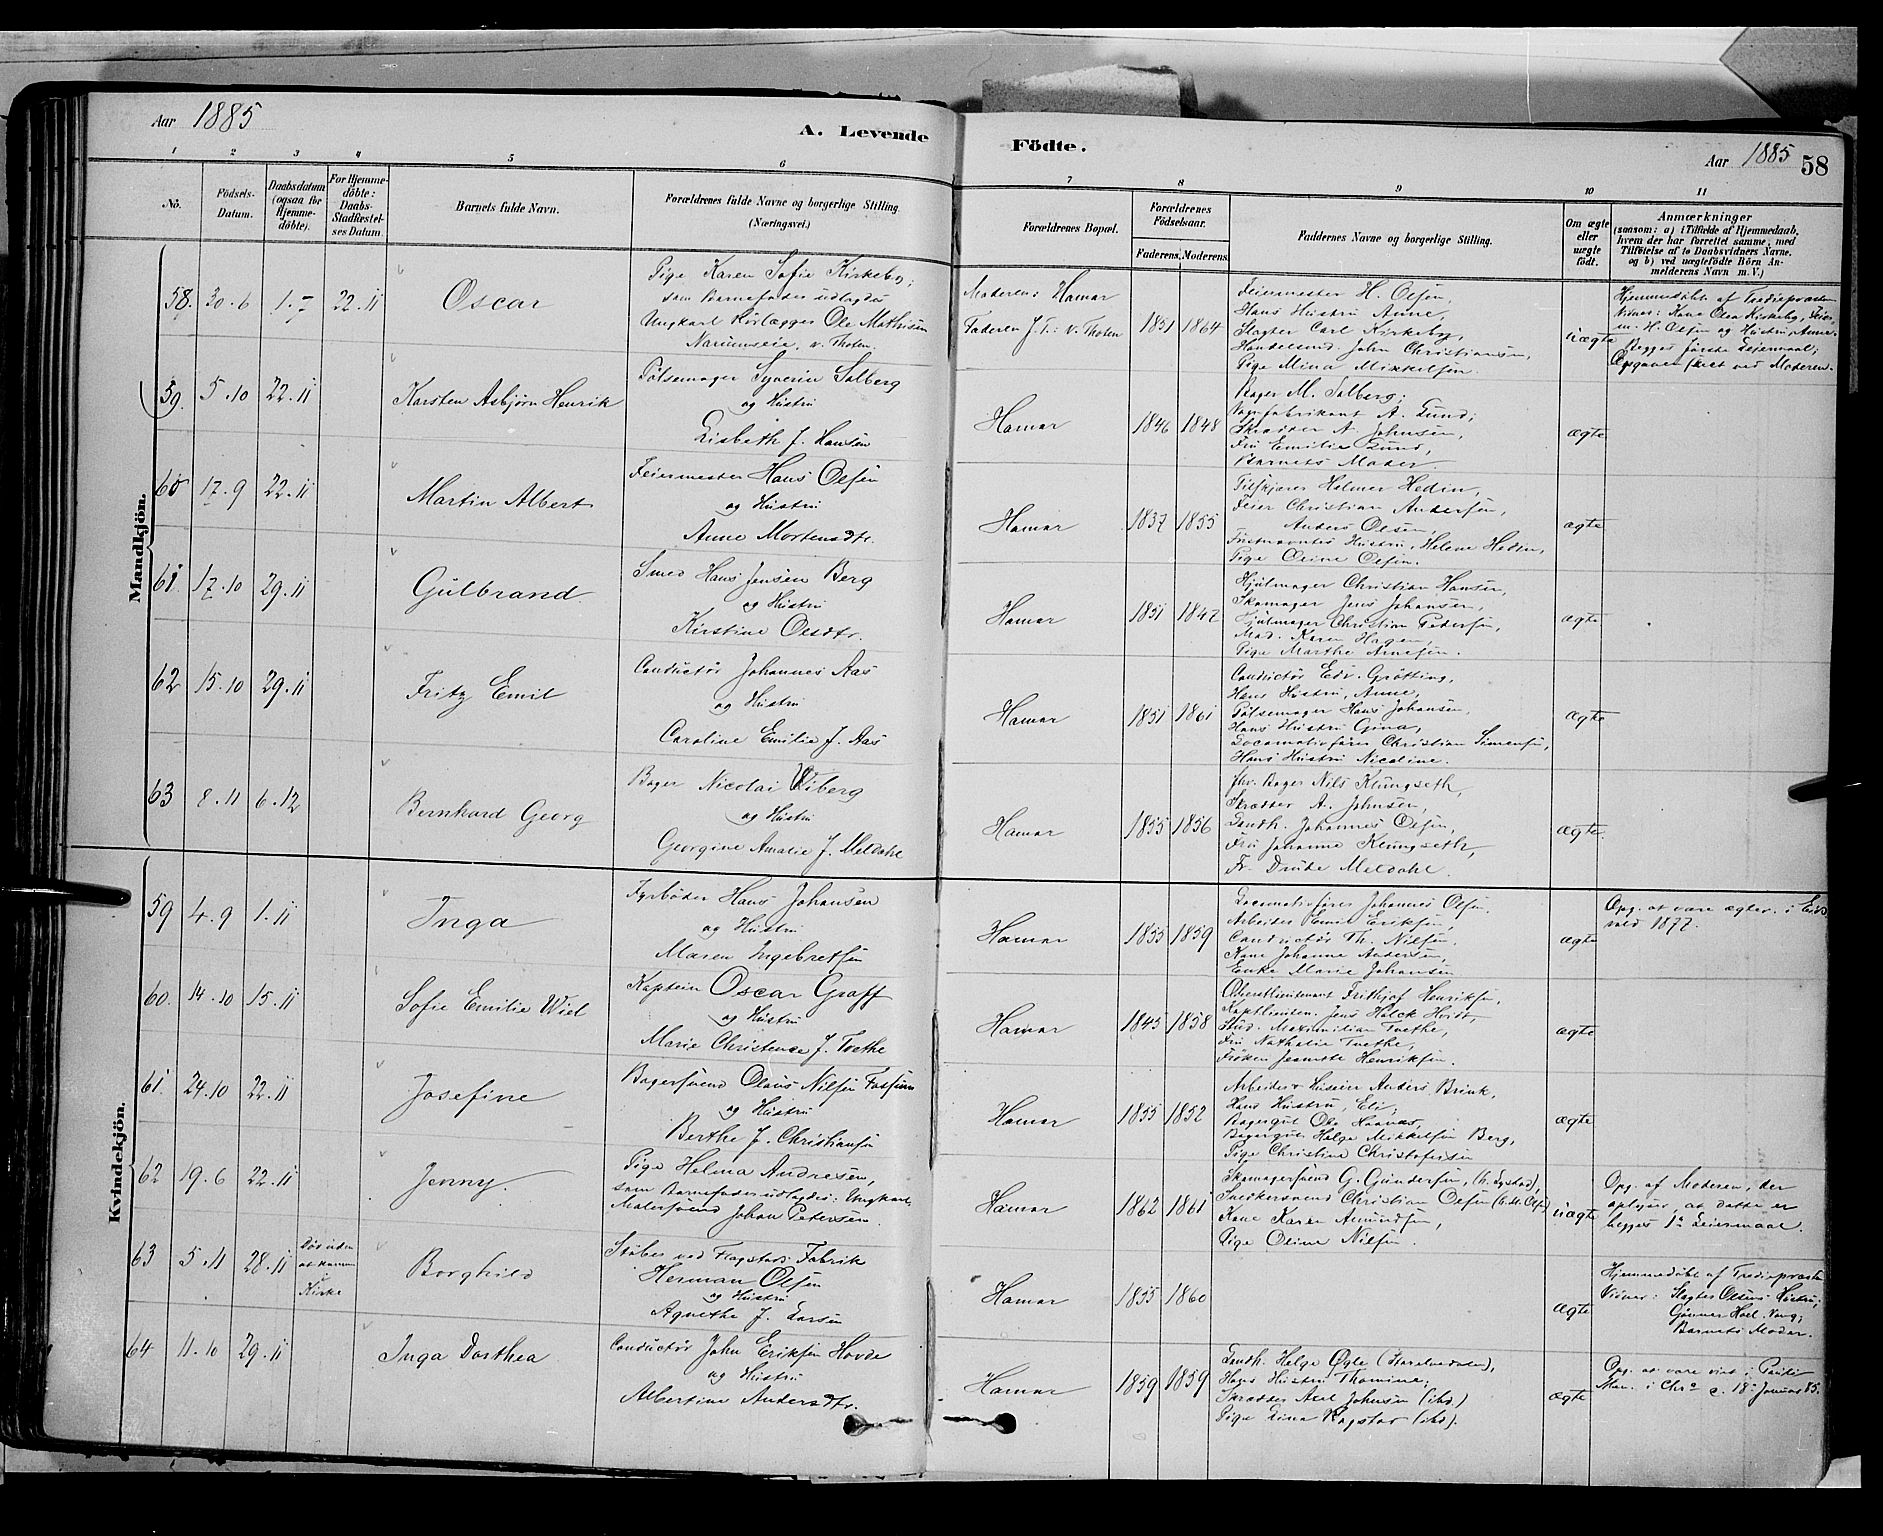 Aar 1885
A. Levende Födte.
Aar 1885 58
1 2 3 4 5 6 7 8 9 10 11
No.
Födsels-Datum.
Daabsdatum (ogsaa for Hjemme-döbte).
For Hjemme-döbte: Daabs-Stadfæstel-ses Datum.
Barnets fulde Navn.
Forældrenes fulde Navne og borgerlige Stilling. (Næringsvei.)
Forældrenes Bopæl.
Forældrenes Födselsaar.
Faderens. Moderens.
Faddernes Navne og borgerlige Stilling.
Om ægte eller uægte födt.
Anmærkninger
(saasom: a) i Tilfælde af Hjemmedaab, hvem der har forrettet samme, med Tilföielse af to Daabsvidners Navne. og b) ved uægtefödte Börn Anmelderens Navn m. V.)
Mandkjön.
58. 30.6 1.- 22.11 Oscar
Pige Karen Sofie Kirkeby;
som Barnefader udlagdes
Ungkarl Rørlægger Ole Mathisen
v. Thoten.
Moderens Hamar
Faderen v. Thoten
1851 1864
Feiermester H. Olsen,
Hans Hustru Anne,
Slagter Carl Kirkeby,
Handelsmd. John Christiansen,
Pige Mina Mikkelsen.
uægte
Hjemmedøbt af
og Hustru Anne.
Begges første Leiermaal;
Opgaven skeet ved Moderen.
59. 5.10 22.11 Karsten Asbjørn Henrik
Pølsemager Syverin Solberg
og Hustru
Lisbeth J. Hansen
Hamar 1846 1848
Bager M. Solberg;
A. Lund;
Skrædder A. Johnsen,
Fru Emilie Lund,
Barnets Moder.
ægte
60 17.9 22.11 Martin Albert
Feiermester Hans Olsen
og Hustru
Anne Mortensdtr.
Hamar 1837 1855
Helmer Hedin,
Feier Christian Andersen,
Anders Olsen,
Hustru, Helene Hedin,
Pige Oline Olsen.
ægte
61 17.10 29.11 Gulbrand
Smed Hans Jensen Berg
og Hustru
Kirstine Olsdtr.
Hamar 1851 1847
Hjulmager Christian Hansen,
Skomager Jens Johansen,
Hjulmager Christian Pedersen,
Mad. Karen Hagen,
Pige Marthe Arnesen.
ægte
62 15.10 29.11 Fritz Emil
Conductør Johannes Aas
og Hustru
Caroline Emilie J. Aas
Hamar 1851 1861
Conductør Edv. Grøtting,
Hans Hustru, Anne,
Pølsemager Hans Johansen,
Hans Hustru Gina,
Locomotivfører Christian Simensen,
Hans Hustru Nicoline.
ægte
63 8.11 6.12 Bernhard Georg
Bager Nicolai Wiberg
og Hustru
Georgine Amalie J. Meldahl
Hamar 1855 1856
fhv. Bager Nils Klungseth,
Skrædder A. Johnsen,
Landh. Johannes Olsen,
Fru Johanne Klungseth,
Fr. Drude Meldahl.
ægte.
Kvindekjön.
59 4.9 1.11 Inga
Fyrbøder Hans Johansen
og Hustru
Maren Ingebretsen
Hamar 1855 1859
Locomotivfører Johannes Olsen.
Arbeider Emil Eriksen,
Conductør Th. Nilsen,
Kone Johanne Andersen,
Enke Marie Johansen
ægte
Opg. at være ægtev. i Eids-
vold 1877.
60. 14.10 15.11 Sofie Emilie Wiel
Kaptein Oscar Graff
og Hustru
Marie Christence J. Tvethe
Hamar 1845 1858
Oberstlieutenant Frithjof Henriksen,
Stud. Maximilian Tvethe,
Fru Nathalie Tvethe,
Frøken Jeanette Henriksen.
ægte
61 24.10 22.11 Josefine
Bagersvend Olaus Nilsen Fossum
og Hustru
Berthe J. Christiansen
Hamar 1855 1852
Arbeider Anders Brink,
Hans Hustru, Eli;
Bagergut Ole Haavas,
Bagergut Helge Mikkelsen Berg,
Pige Christine Christofersen
ægte
62 19.6 22.11 Jenny.
Pige Helma Andresen,
som Barnefader udlagdes: Ungkarl
Malersvend Johan Petersen.
Hamar 1862 1861
Skomagersvend G. Gundersen,
Snedkersvend Christian Olsen
Kone Karen Amundsen,
Pige Oline Nilsen.
uægte
Opg. af Moderen, der
oplyser, at dette er
begges 1ste Leiermaal.
63 5.11 28.11
Død uden
at komme
i Kirke
Borghild
Støber ved Flagstad Fabrik
Herman Olsen
og Hustru
Agnethe J. Larsen
Hamar 1855 1860
ægte
Hjemmedøbt af
Slagter Olsens Hustru;
Barnets Moder.
64 11.10 29.11 Inga Dorthea
Conductør John Eriksen Hovde
og Hustru
Albertine Andersdtr.
Hamar 1859 1859
Landh. Helge Øgle
Hans Hustru Thomine;
Skrædder Axel Johnsen (ibd.)
Pige Lina Bagstad (ibd.).
ægte
Opg. at være viet i
i Chra d. 18de Januar 85.